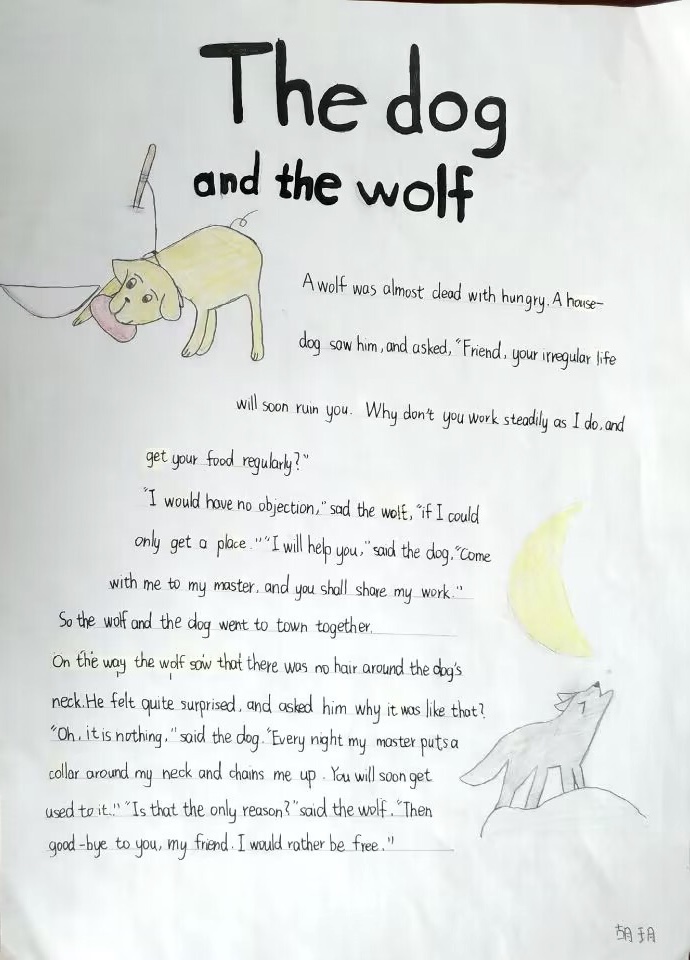 The dog
and the wolf
A wolf was almost dead with hungry. A house-
dog saw him, and asked, "Friend, your irregular life
will soon ruin you. Why don't you work steadily as I do, and
get your food regularly?"
"I would have no objection," sad the wolf, "if I could
only get a place." "I will help you," said the dog, "Come
with me to my master, and you shall share my work."
So the wolf and the dog went to town together.
On the way the wolf saw that there was no hair around the dog's
neck. He felt quite surprised, and asked him why it was like that?
"Oh, it is nothing," said the dog. "Every night my master puts a
collar around my neck and chains me up. You will soon get
used to it." "Is that the only reason?" said the wolf. "Then
good-bye to you, my friend. I would rather be free."
胡玥